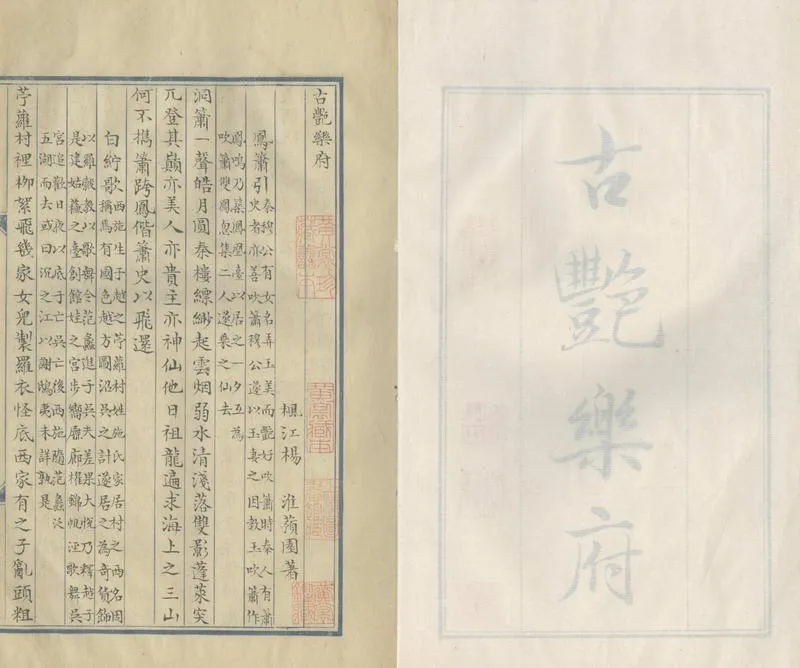 古艷樂府
古艷樂府
楓江楊 淮蘋園著
鳳簫引秦穆公有女名弄玉美而艷好吹簫時秦人有蕭
史者亦善吹簫穆公遂以玉妻之因教玉吹簫作
鳳鳴乃築鳳凰臺以居之一夕互為
吹簫雙鳳忽集二人遂乘之仙去
洞簫一聲皓月圓秦樓縹緲起雲烟弱水清淺落雙影蓬萊突
兀登其巔亦美人亦貴主亦神仙他日祖龍遍求海上之三山
何不攜簫跨鳳偕簫史以飛還
白紵歌西施生于越之苧蘿村姓施氏家居村之西名因
稱焉有國色越方圖沼吳之計遂居之為奇貨飾
以羅縠教以歌舞令范蠡進于吳夫差果大悅乃釋越于
是建姑蘇之臺創館娃之宮步響屧廊櫂錦帆涇歌舞吳
宮追歡日夜以底于亡吳亡後西施隨范蠡泛
五湖而去或曰沉之江以謝鴟夷未詳孰是
苧蘿村裡柳絮飛幾家女兒製羅衣怪底西家有之子亂頭粗